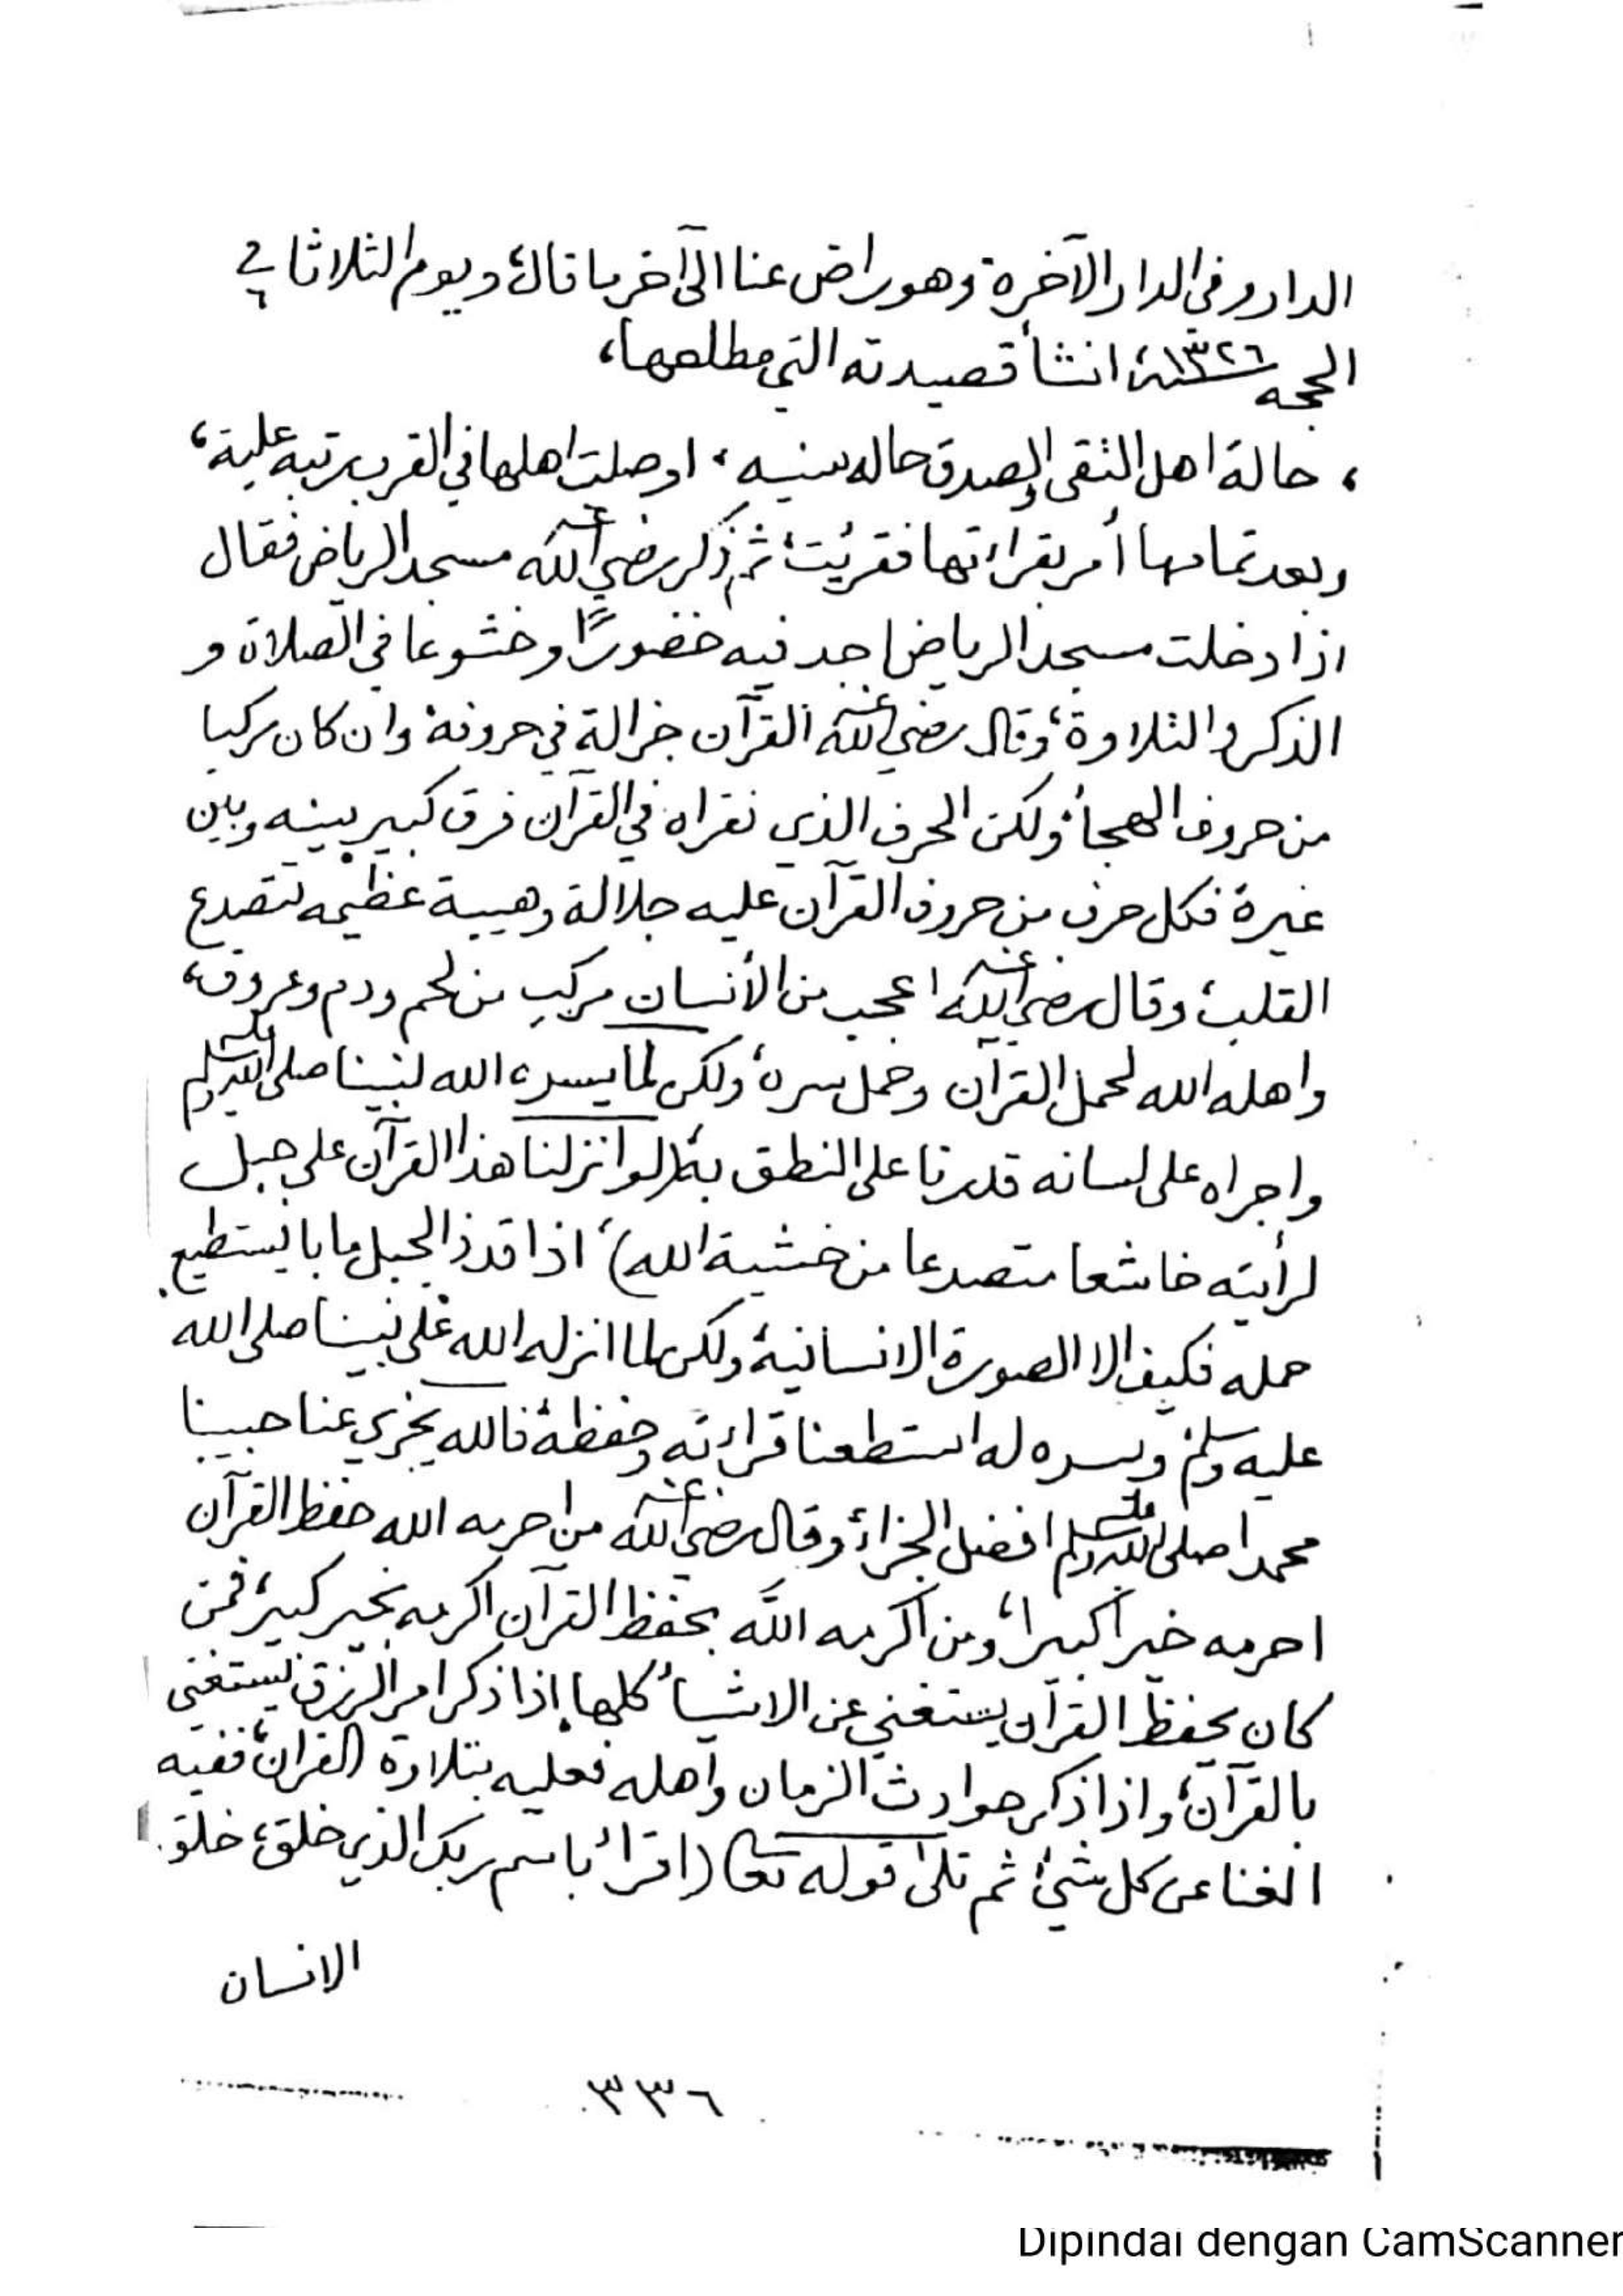 الدار وفي الدار الآخرة وهو راض عنا الى آخر ما قال، ويوم الثلاثا في ٦
الحجه سنة ١٣٢٦ انشأ قصيدته التي مطلعها،
، حالة اهل التقى والصدق حاله سنيه ، اوصلت اهلها في القرب رتبه علية،
وبعد تمامها أمر بقراءتها فقريت، ثم ذكر رضي الله عنه مسجد الرياض فقال
اذا دخلت مسجد الرياض اجد فيه حضورًا وخشوعا في الصلاة و
الذكر والتلاوة، وقال رضي الله عنه القرآن جزالة في حروفه وان كان مركبا
من حروف الهجأ، ولكن الحرف الذي نقراه في القرآن فرق كبير بينه وبين
غيره فكل حرف من حروف القرآن عليه جلالة وهيبة عظيمه تتصدع
القلب، وقال رضي الله عنه اعجب من الأنسان مركب من لحم ودم وعروق،
واهله الله لحمل القرآن وحمل سره، ولكن لما يسره الله لنبينا صلى الله عليه وسلم
واجراه على لسانه قدرنا على النطق به، (لو انزلنا هذا القرآن على جبل
لرأيته خاشعا متصدعا من خشية الله)، اذا قد ذا الجبل ما با يستطيع
حمله فكيف الا الصورة الانسانية، ولكن لما انزله الله على نبينا صلى الله
عليه وسلم ويسره له استطعنا قراءته وحفظه، فالله يجزي عنا حبيبنا
محمدا صلى الله عليه وسلم افضل الجزاء، وقال رضي الله عنه من احرمه الله حفظ القرآن
احرمه خيرا كبيرا، ومن اكرمه الله بحفظ القرآن اكرمه بخير كبير، فمن
كان يحفظ القرآن يستغني عن الاشيأ كلها، اذا ذكر امر الرزق يستغني
بالقرآن، واذا ذكر حوادث الزمان واهله فعليه بتلاوة القرآن، ففيه
الغنا عن كل شيء، ثم تلى قوله تعا (اقرأ باسم ربك الذي خلق، خلق
الانسان
٣٣٦
Dipindai dengan CamScanner